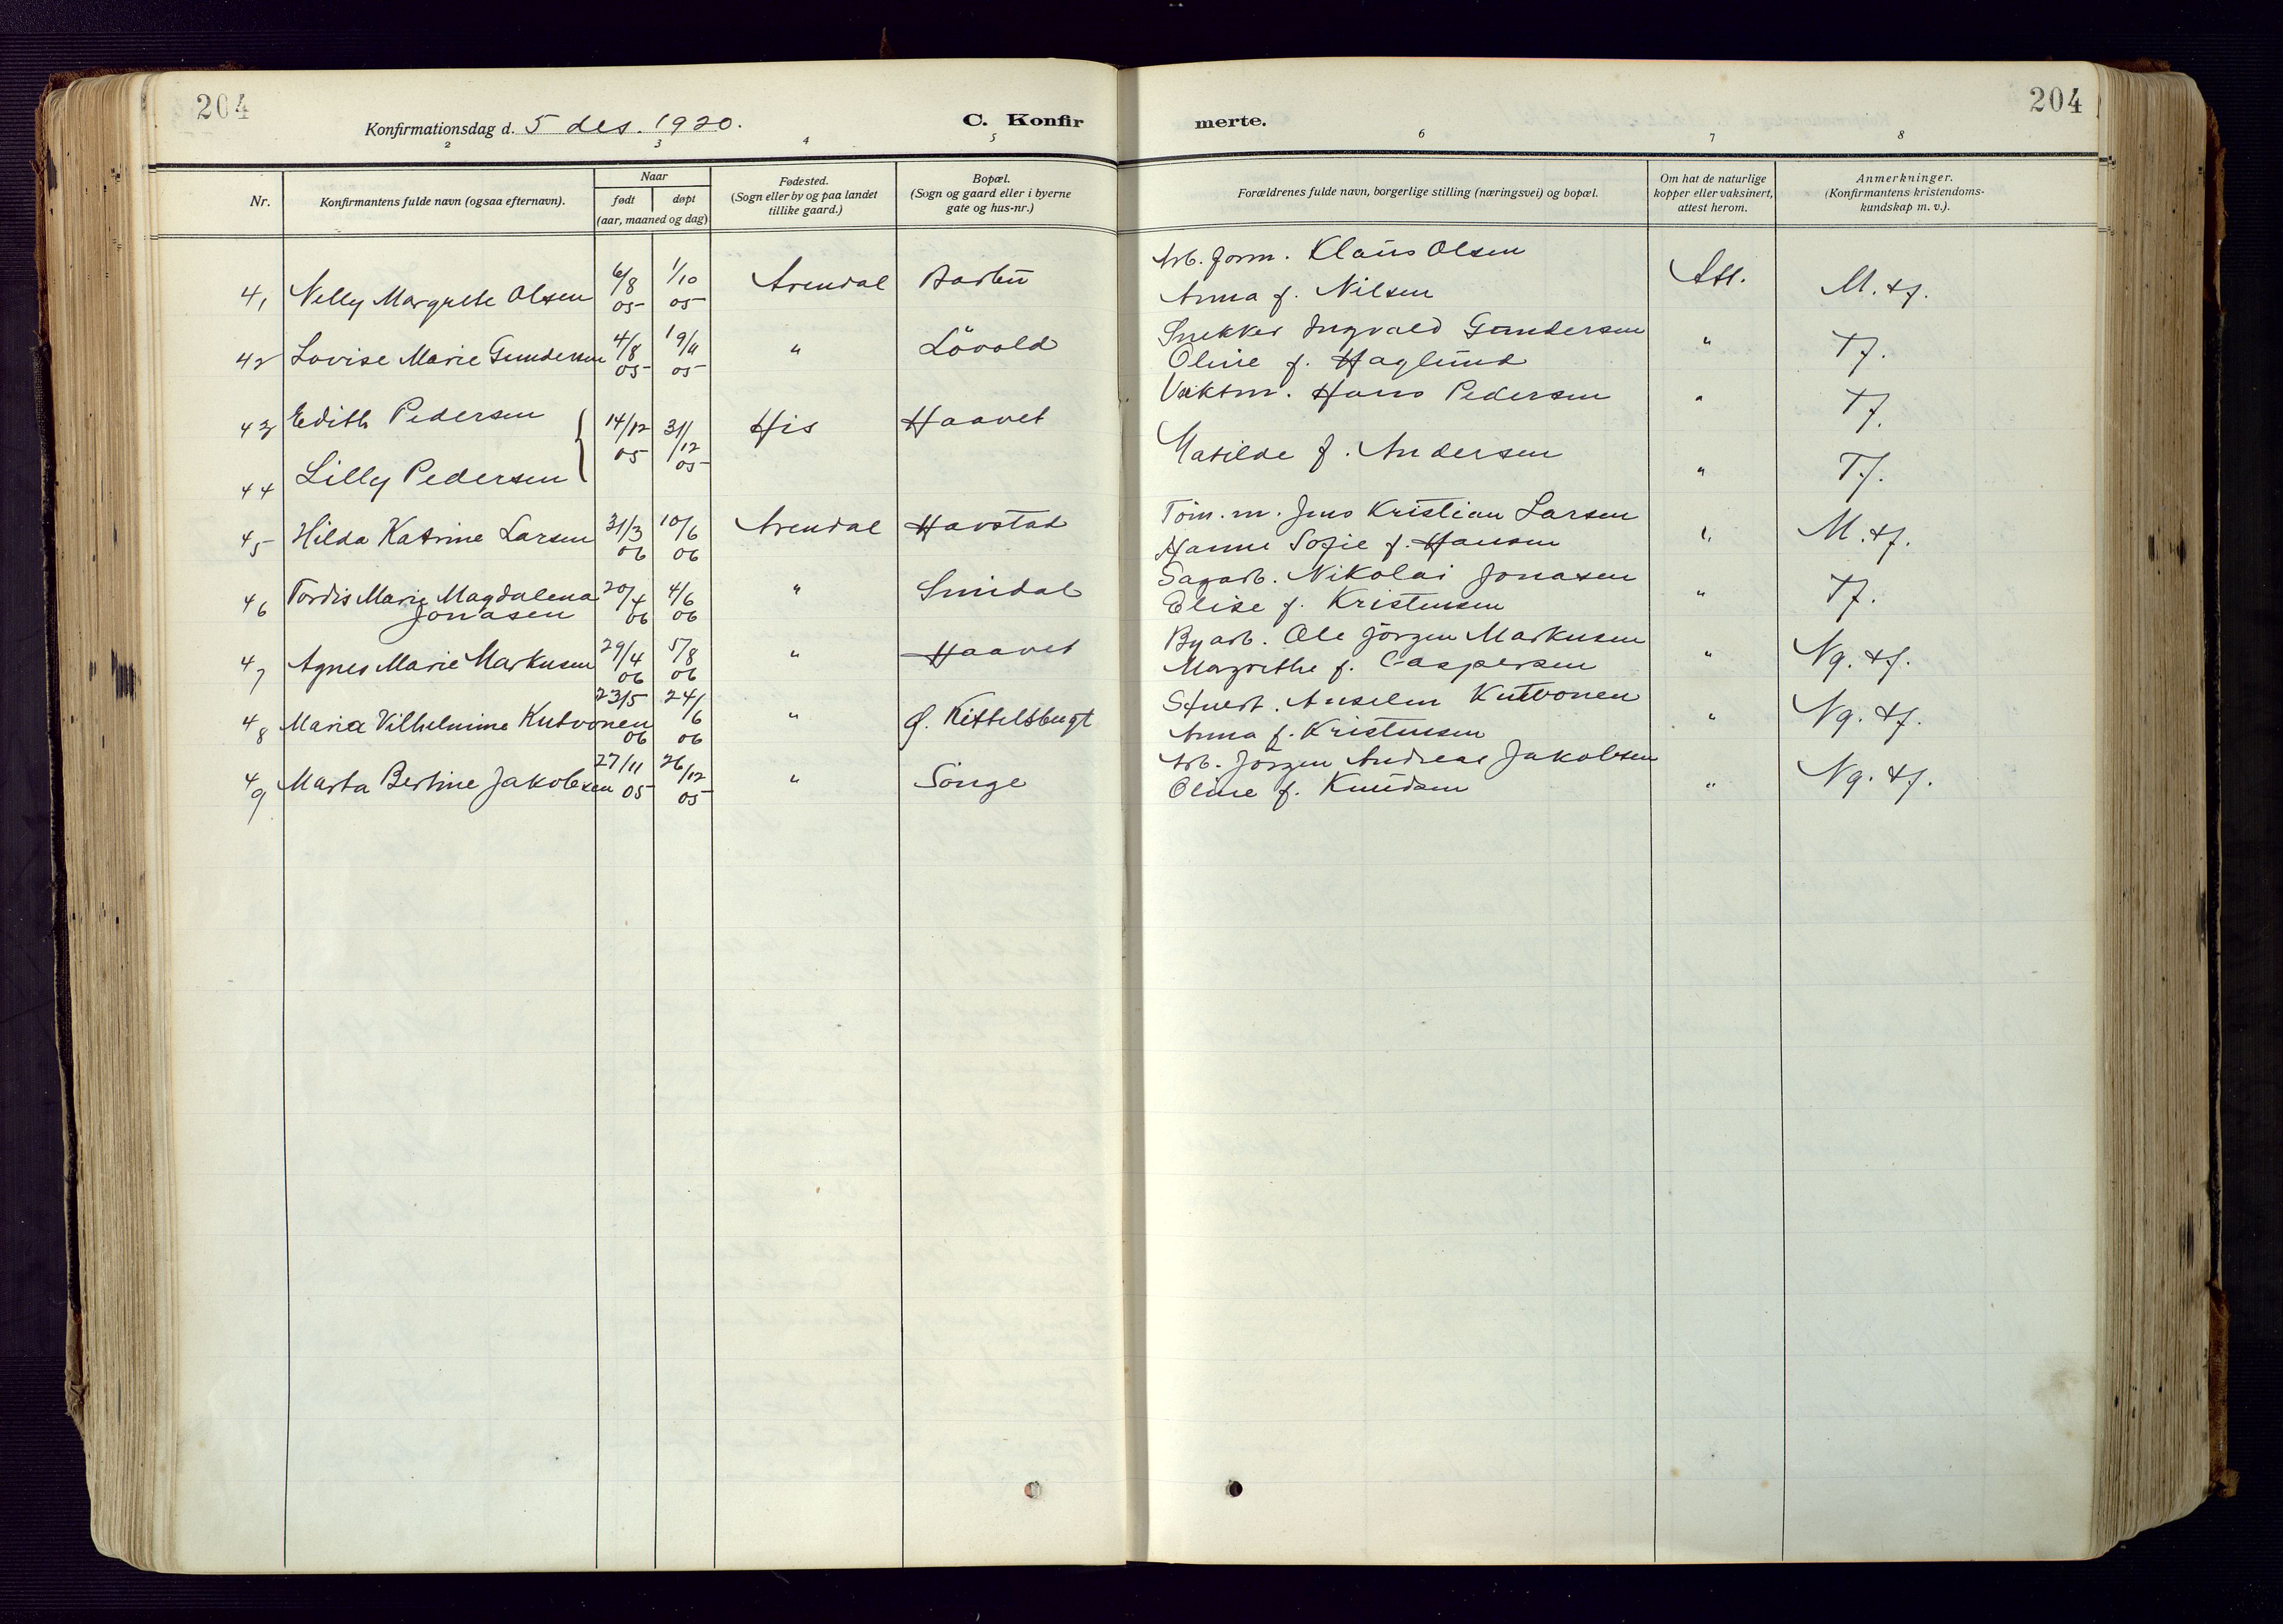 204
204
Konfirmationsdag d. 5 des. 1920.
C. Konfir
merte.
2 3 4 5 6 7 8
Nr.
Konfirmantens fulde navn (ogsaa efternavn).
Naar
født
døpt
(aar, maaned og dag)
Fødested.
(Sogn eller by og paa landet
tillike gaard.)
Bopæl.
(Sogn og gaard eller i byerne
gate og hus-nr.)
Forældrenes fulde navn, borgerlige stilling (næringsvei) og bopæl.
Om hat de naturlige
kopper eller vaksinert,
attest herom.
Anmerkninger.
(Konfirmantens kristendoms-
kundskap m. v.).
41 Nelly Margrethe Olsen 6/8 05 1/10 05 Arendal Barbu
Arb. form. Klaus Olsen
Anna f. Nilsen
Att. M. tf.
42 Lovise Marie Gundersen 4/8 05 19/11 05 " Lövold
Snekker Ingvald Gundersen
Oline f. Haglund
" Tf.
43 Edith Pedersen 14/12 05 31/12 05 His Haavet
Vaktm. Hans Pedersen
" Tf.
44 Lilly Pedersen
Matilde f. Andersen
" Tf.
45 Hilda Katrine Larsen 31/3 06 10/6 06 Arendal Havstad
Töm. m. Jens Kristian Larsen
Hanne Sofie f. Hansen
" M. tf.
46 Tordis Marie Magdalena
Jonasen 20/4 06 4/6 06 " Smidal
Sagarb. Nikolai Jonasen
Elise f. Kristensen
" Tf.
47 Agnes Marie Markusen 29/4 06 5/8 06 " Haavet
Byarb. Ole Jörgen Markusen
Margrethe f. Caspersen
" Ng. tf.
48 Maria Vilhelmine Kutvonen 23/5 06 24/6 06 " G. Kittelsbugt
Stuert. Anselm Kutvonen
Anna f. Kristensen
" Ng. tf.
49 Marta Bertine Jakobsen 27/11 05 26/12 05 " Songe
Arb. Jörgen Andreas Jakobsen
Oline f. Knudsen
" Ng. tf.